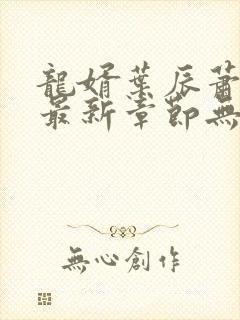 龍婿葉辰蕭
最新章節無
無心創作